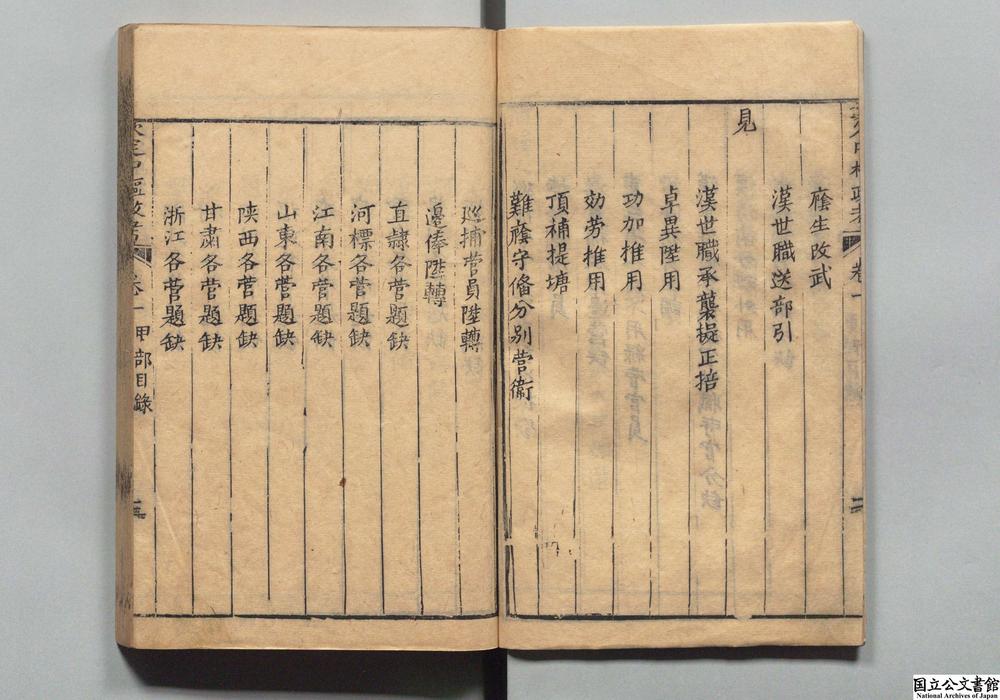 廕生改武
漢世職送部引
見
漢世職承襲擬正揞
卓異陞用
功加推用
効劳推用
頂補提塘
難廕守俻分别営衞
廵捕营員陞轉
邊俸陞轉
直隷各营題缺
河標各营題缺
江南各营題缺
山東各营題缺
陝西各营題缺
甘肅各营題缺
浙江各营題缺
卷一 甲部目錄
国立公文書館
National Archives of Japan